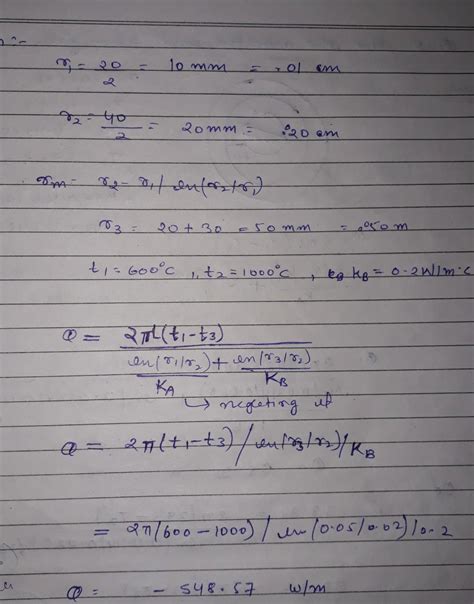 r₁ = 20/2 = 10 mm = .01 cm
r₂ = 40/2 = 20mm = .20 cm
rm = r₂ - r₁ / ln(r₂/r₁)
r₃ = 20 + 30 = 50 mm = .050 m
t₁ = 600°C , t₂ = 1000°C , KB = 0.2 W/m°C
Q = 2πL(t₁-t₃) / (ln(r₁/r₂)/KA + ln(r₃/r₂)/KB)
↳ negleting it
Q = 2π(t₁-t₃) / ln(r₃/r₂) / KB
= 2π(600 - 1000) / ln(0.05/0.02) / 0.2
Q = - 548.57 W/m